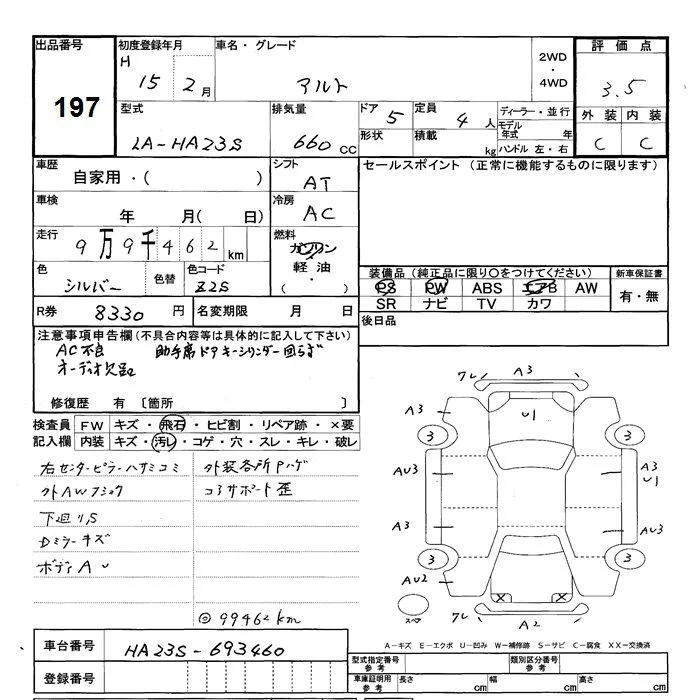 出品番号 初度登録年月 車名・グレード 2WD・4WD 評価点
197 H 15 2月 アルト 3.5
型式 排気量 ドア 5 定員 4人 ディーラー・並行 外装 内装
LA-HA23S 660 CC 形状 積載 kg モデル年式 年 ハンドル 左・右 C C
車歴 シフト セールスポイント (正常に機能するものに限ります)
自家用・( ) AT
車検 冷房
年 月( 日) AC
走行 燃料
9万9千462km ガソリン
軽油・( )
色 色替 色コード 装備品 (純正品に限り○をつけてください) 新車保証書
シルバー Z2S PS PW ABS エアB AW 有・無
SR ナビ TV カワ
R券 8330円 名変期限 月 日 後日品
注意事項申告欄(不具合内容等は具体的に記入して下さい)
AC不良 助手席ドアキーシリンダー回らず
オーディオ欠品
修復歴 有 〔箇所 〕
検査員 FW キズ・飛石・ヒビ割・リペア跡・×要
記入欄 内装 キズ・汚レ・コゲ・穴・スレ・キレ・破レ
右センターピラーハサミコミ 外装各所Pハゲ
外AWフショク コアサポート歪
下廻りS
Dミラーキズ
ボディAU
◎99462km
ワレ A3
A3 U1
3 3
AU3 A3
U1
A3 AU3
3 3
AU2
スペア ワレ A2
車台番号 HA23S-693460
登録番号
A－キズ E－エクボ U－凹み W－補修跡 S－サビ C－腐食 XX－交換済
型式指定番号 参考 類別区分番号 参考
車庫証明用 参考 長さ cm 幅 cm 高さ cm